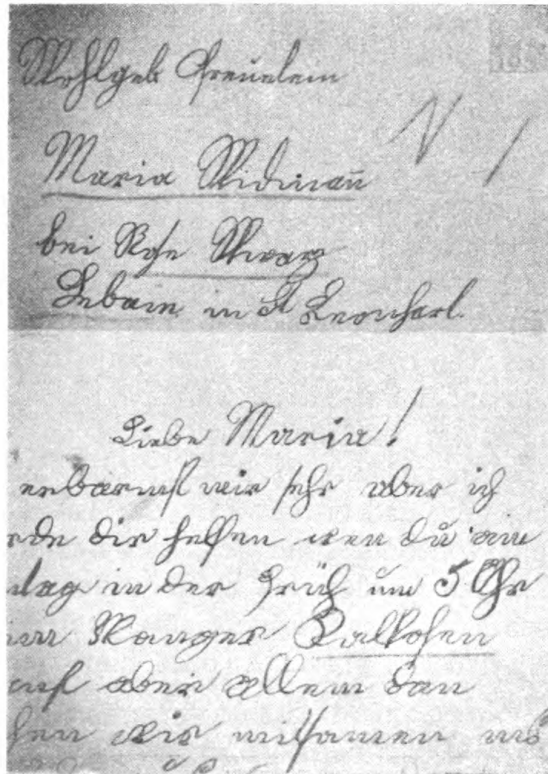 Wohlgeb Freuelein
N 1
Maria Widmann
bei Rosa Schwarz
Hebam in St Leonhard.
Liebe Maria!
erbarmst mir sehr aber ich
rde dir helfen wen du am
ntag in der Früh um 5 Uhr
im Kalkofen
mst aber allein dan
hen wir mitsamen